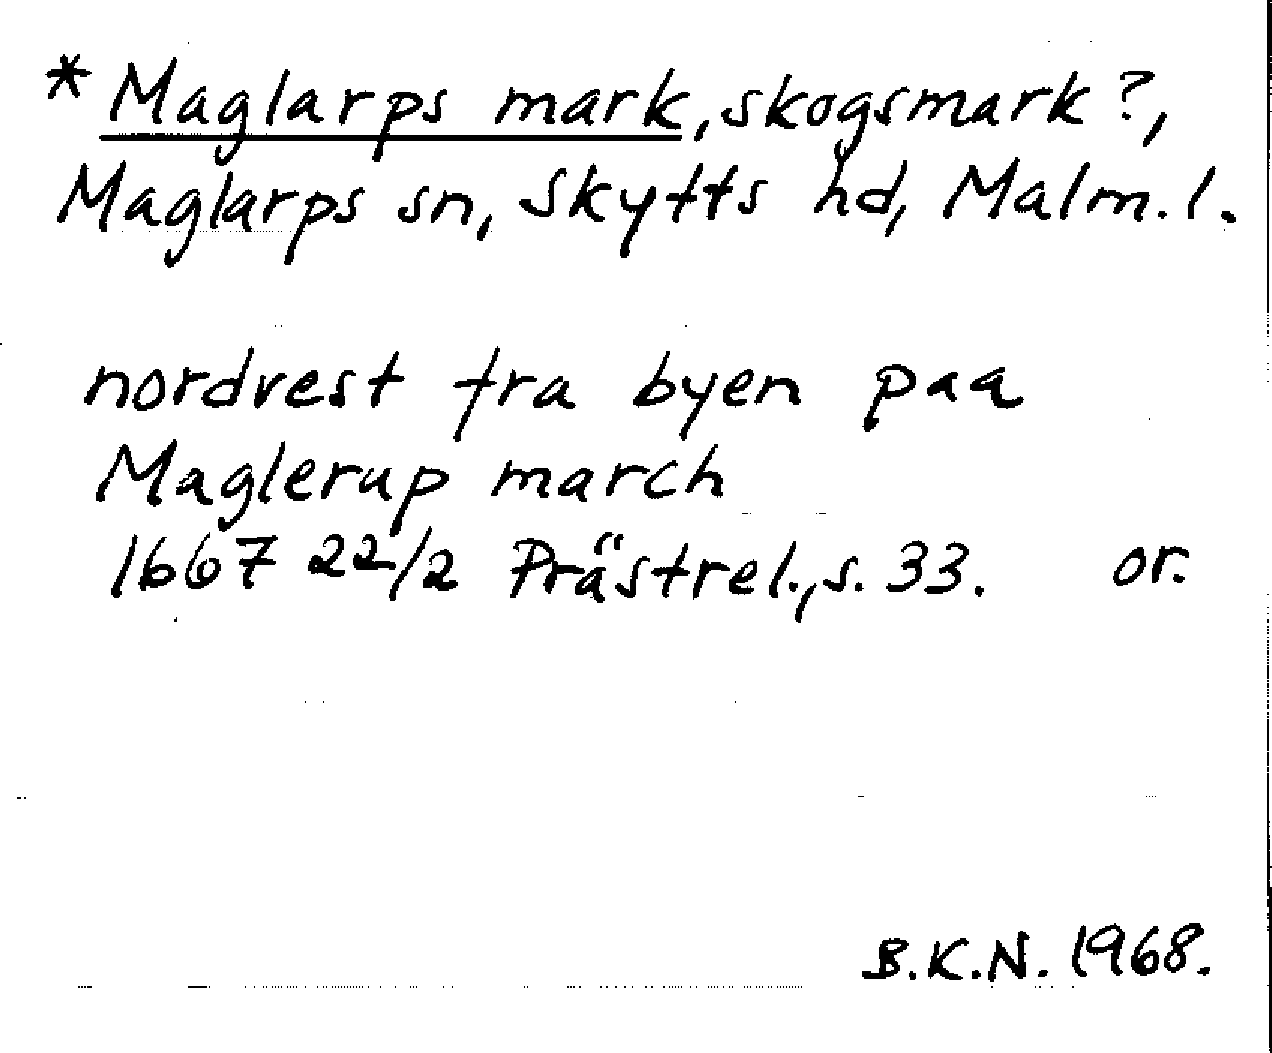 * Maglarps mark, skogsmark?,
Maglarps sn, Skytts hd, Malm. l.
nordvest fra byen paa
Maglerup march
1667 22/2 Prästrel., s. 33. or.
B.K.N. 1968.